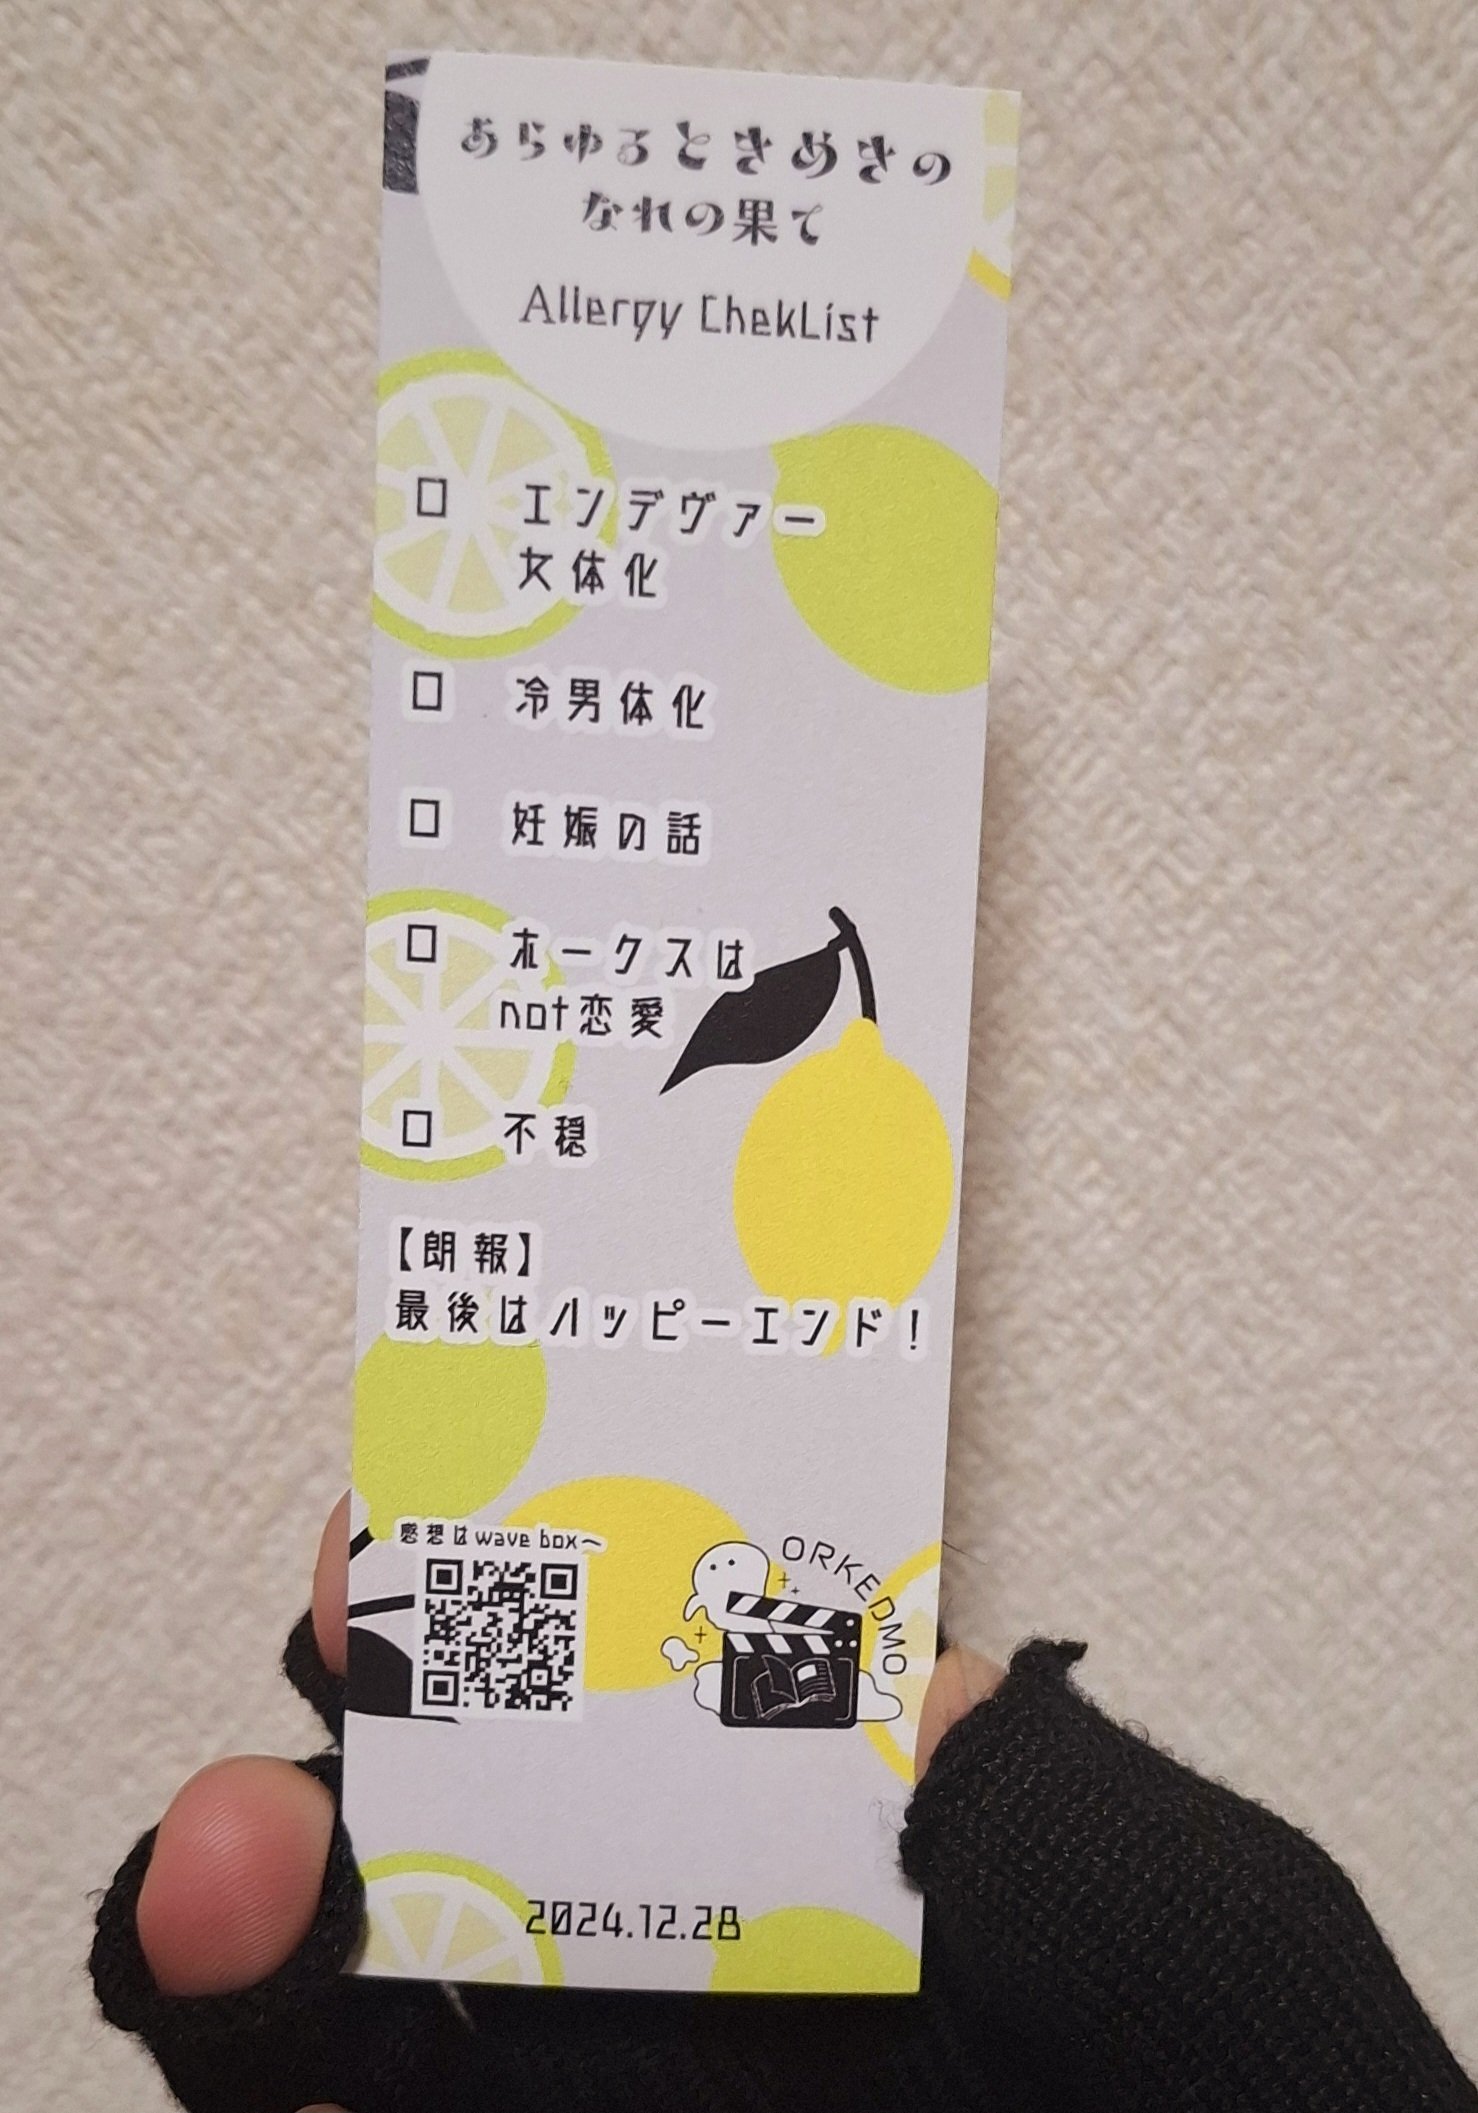 あらゆるときめきの
なれの果て
Allergy ChekList
□ エンデヴァー
女体化
□ 冷男体化
□ 妊娠の話
□ ホークスは
not恋愛
□ 不穏
【朗報】
最後はハッピーエンド！
感想はwave box～
ORKEDMO
2024.12.28